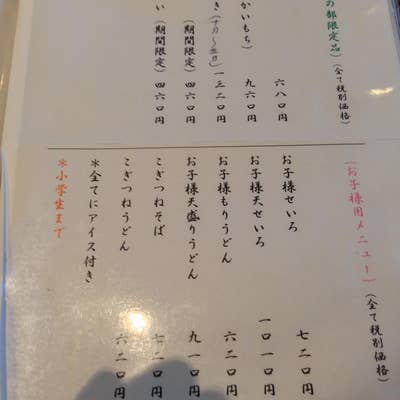 の部限定品)(全て税別価格)
六八〇円
かいもち 九六〇円
き 一三二〇円
(期間限定) 四六〇円
い(期間限定) 四六〇円
(お子様用メニュー)(全て税別価格)
お子様せいろ 七二〇円
お子様天せいろ 一〇一〇円
お子様もりうどん 六二〇円
お子様天盛りうどん 九一〇円
こぎつねそば 七二〇円
こぎつねうどん 六二〇円
＊全てにアイス付き
＊小学生まで